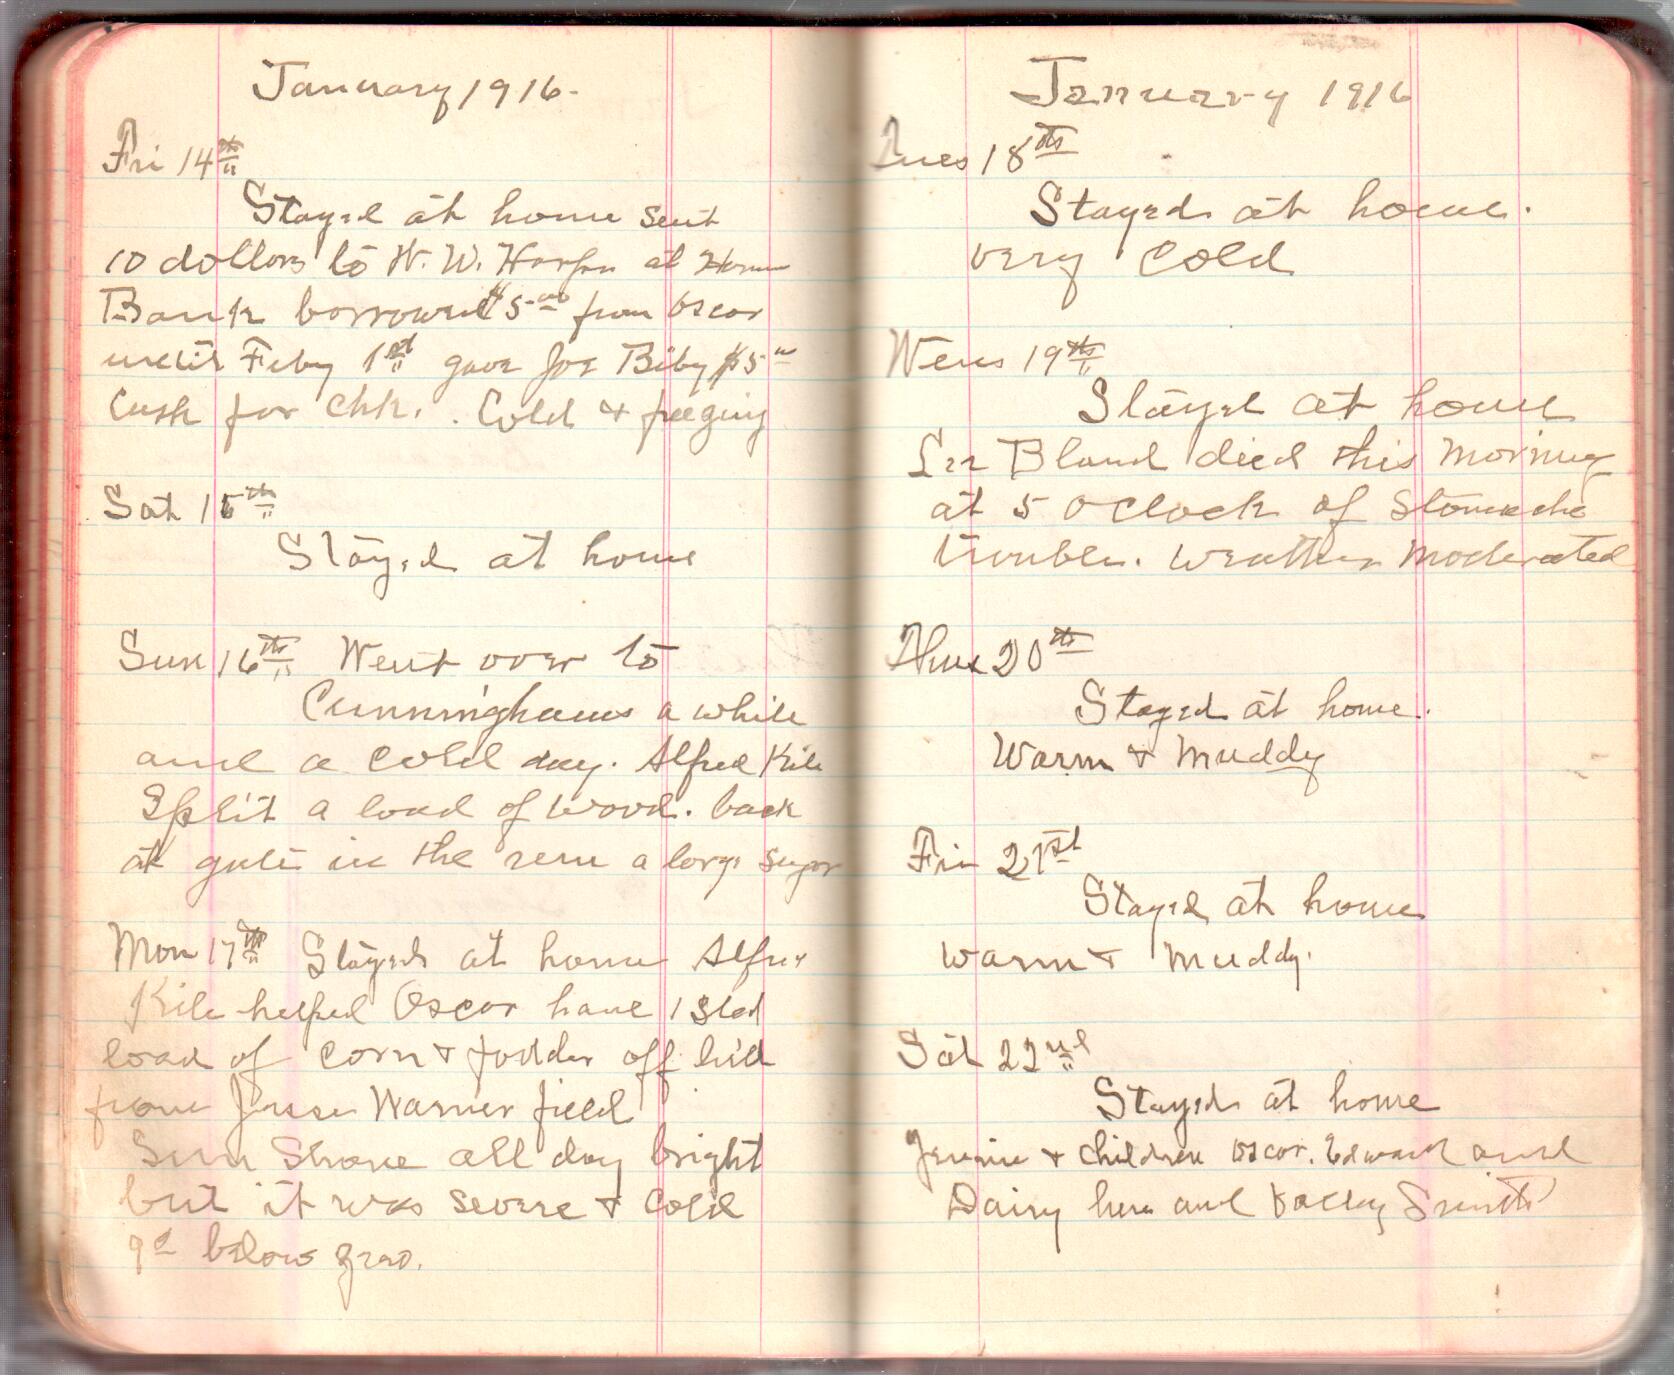 January 1916.
Fri 14th
Stayed at home sent
10 dollors to W. W. Harper at Home
Bank borrowed $5.00 from Oscar
until Feby 1st gave Joe Biby $5.00
Cash for chk. Cold & freezing
Sat 15th
Stayed at home
Sun 16th Went over to
Cunninghams a while
and a cold day. Alfred Kile
Split a load of wood. back
at gate in the a large sugar
Mon 17th Stayed at home Alfred
Kile helped Oscar haul 1 Sled
load of corn & fodder off hill
from Jesse Warner field
Sun Shone all day bright
but it was severe & cold
9° below zero.
January 1916
Tues 18th
Stayed at home.
very cold
Wens 19th
Stayed at home
Lee Bland died this morning
at 5 oclock of Stomache
trouble. Weather moderated
Thur 20th
Stayed at home.
Warm & muddy
Fri 21st
Stayed at home
Warm & muddy.
Sat 22nd
Stayed at home
Jennie & children Oscar. Edward and
Dairy here and Smith